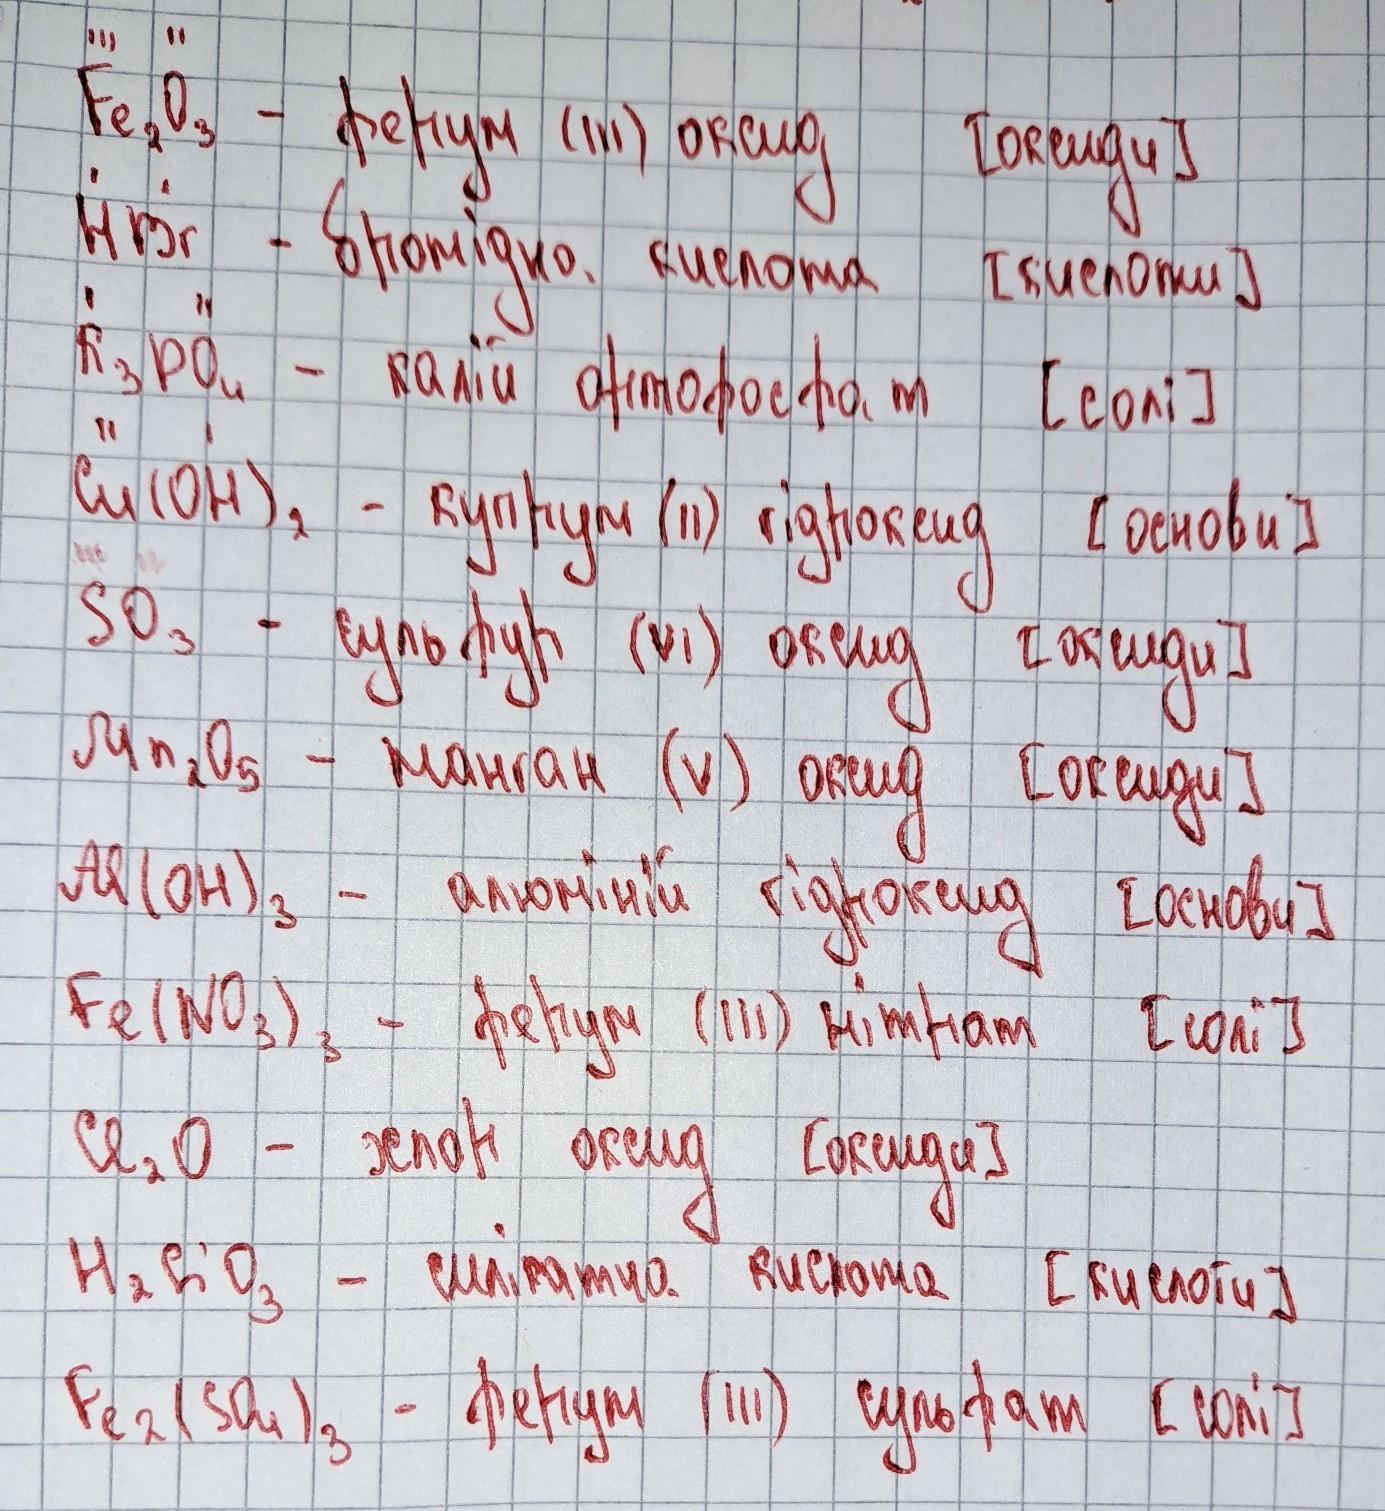 Fe₂O₃ - ферум (III) оксид [оксиди]
HBr - бромідна кислота [кислоти]
K₃PO₄ - калій ортофосфат [солі]
Cu(OH)₂ - купрум (II) гідроксид [основи]
SO₃ - сульфур (VI) оксид [оксиди]
Mn₂O₅ - манган (V) оксид [оксиди]
Al(OH)₃ - алюміній гідроксид [основи]
Fe(NO₃)₃ - ферум (III) нітрат [солі]
Cl₂O - хлор оксид [оксиди]
H₂SiO₃ - силікатна кислота [кислоти]
Fe₂(SO₄)₃ - ферум (III) сульфат [солі]